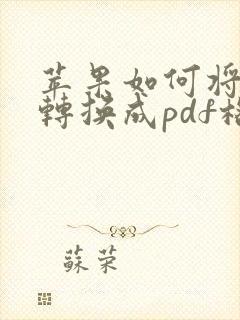 苹果如何将
轉換成pdf格
蘇荣